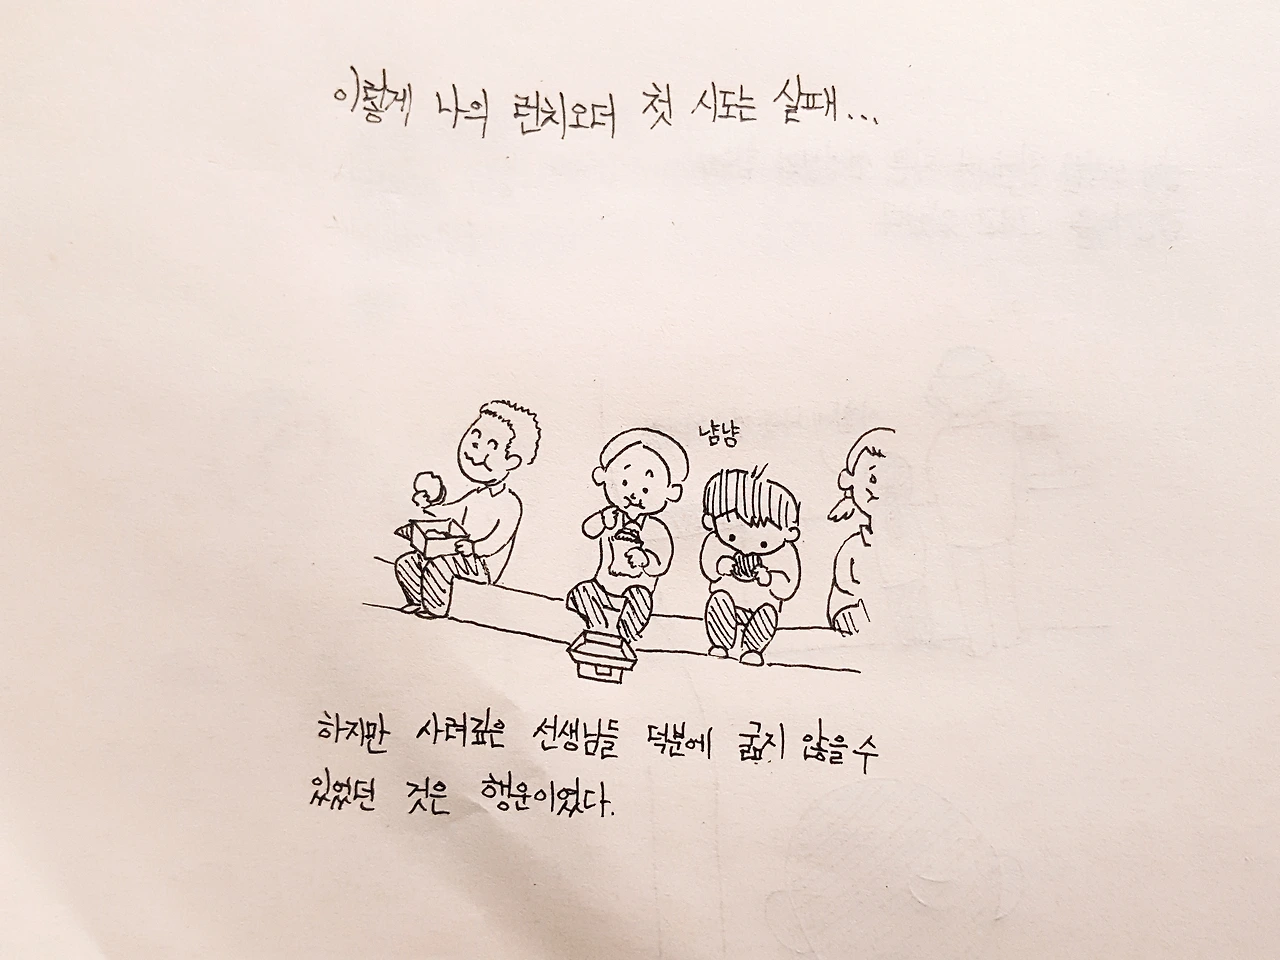 이렇게 나의 런치오더 첫 시도는 실패...
냠냠
하지만 사려깊은 선생님들 덕분에 굶지 않을 수
있었던 것은 행운이었다.